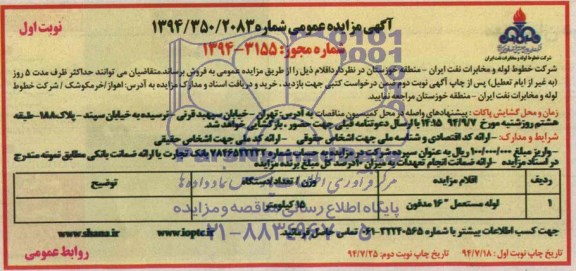 آگهی مزایده عمومی شماره ۱۳۹۴/۳۵۰/۲۰۸۳
نوبت اول
شماره مجوز: ۳۱۵۵-۱۳۹۴
شرکت خطوط لوله و مخابرات نفت ایران
شرکت خطوط لوله و مخابرات نفت ایران - منطقه خوزستان در نظردارداقلام ذیل را از طریق مزایده عمومی به فروش برساند.متقاضیان می توانند حداکثر ظرف مدت ۵ روز
(به غیر از ایام تعطیل) پس از چاپ آگهی نوبت دوم ضمن درخواست کتبی جهت بازدید ، خرید و دریافت اسناد و مدارک مزایده به آدرس: اهواز /خرمکوشک / شرکت خطوط
لوله و مخابرات نفت ایران - منطقه خوزستان مراجعه نمایند.
زمان و محل گشایش پاکات : پیشنهادهای واصله در محل کمیسیون مناقصات به آدرس: تهران - خیابان سپهبد قرنی - نرسیده به خیابان سپند - پلاک۱۸۸- طبقه
هشتم روزشنبه مورخ ۹۴/۹/۷ ساعت ۱۴:۱۵ با ارسال دعوتنامه قبلی جهت حضور ، بازگشایی خواهد شد.
شرایط و مدارک:- ارائه کد اقتصادی و شناسه ملی جهت اشخاص حقوقی - ارائه کد ملی جهت اشخاص حقیقی
واریز مبلغ ۱۰۰/۰۰۰/۰۰۰ ریال به عنوان سپرده شرکت در مزایده به حساب شماره بانک تجارت یا ارائه ضمانت بانکی مطابق نمونه مندرج
در اسناد مزایده - ارائه ضمانت انجام تعهدات به میزان ۱۰درصد کل مبلغ برنده مزایده
ردیف اقلام مزایده وزن / تعداد/دستگاه توضیح
۱ لوله مستعمل "۱۶ مدفون ۱۵ کیلومتر
جهت کسب اطلاعات بیشتر با شماره ۳۲۲۴۰۵۶۵-۰۶۱ تماس حاصل فرمائید. www.ioptc.ir www.shana.ir
تاریخ چاپ نوبت اول : ۹۴/۷/۱۸ تاریخ چاپ نوبت دوم: ۹۴/۷/۲۵
روابط عمومی
پایگاه اطلاع رسانی مناقصه و مزایده